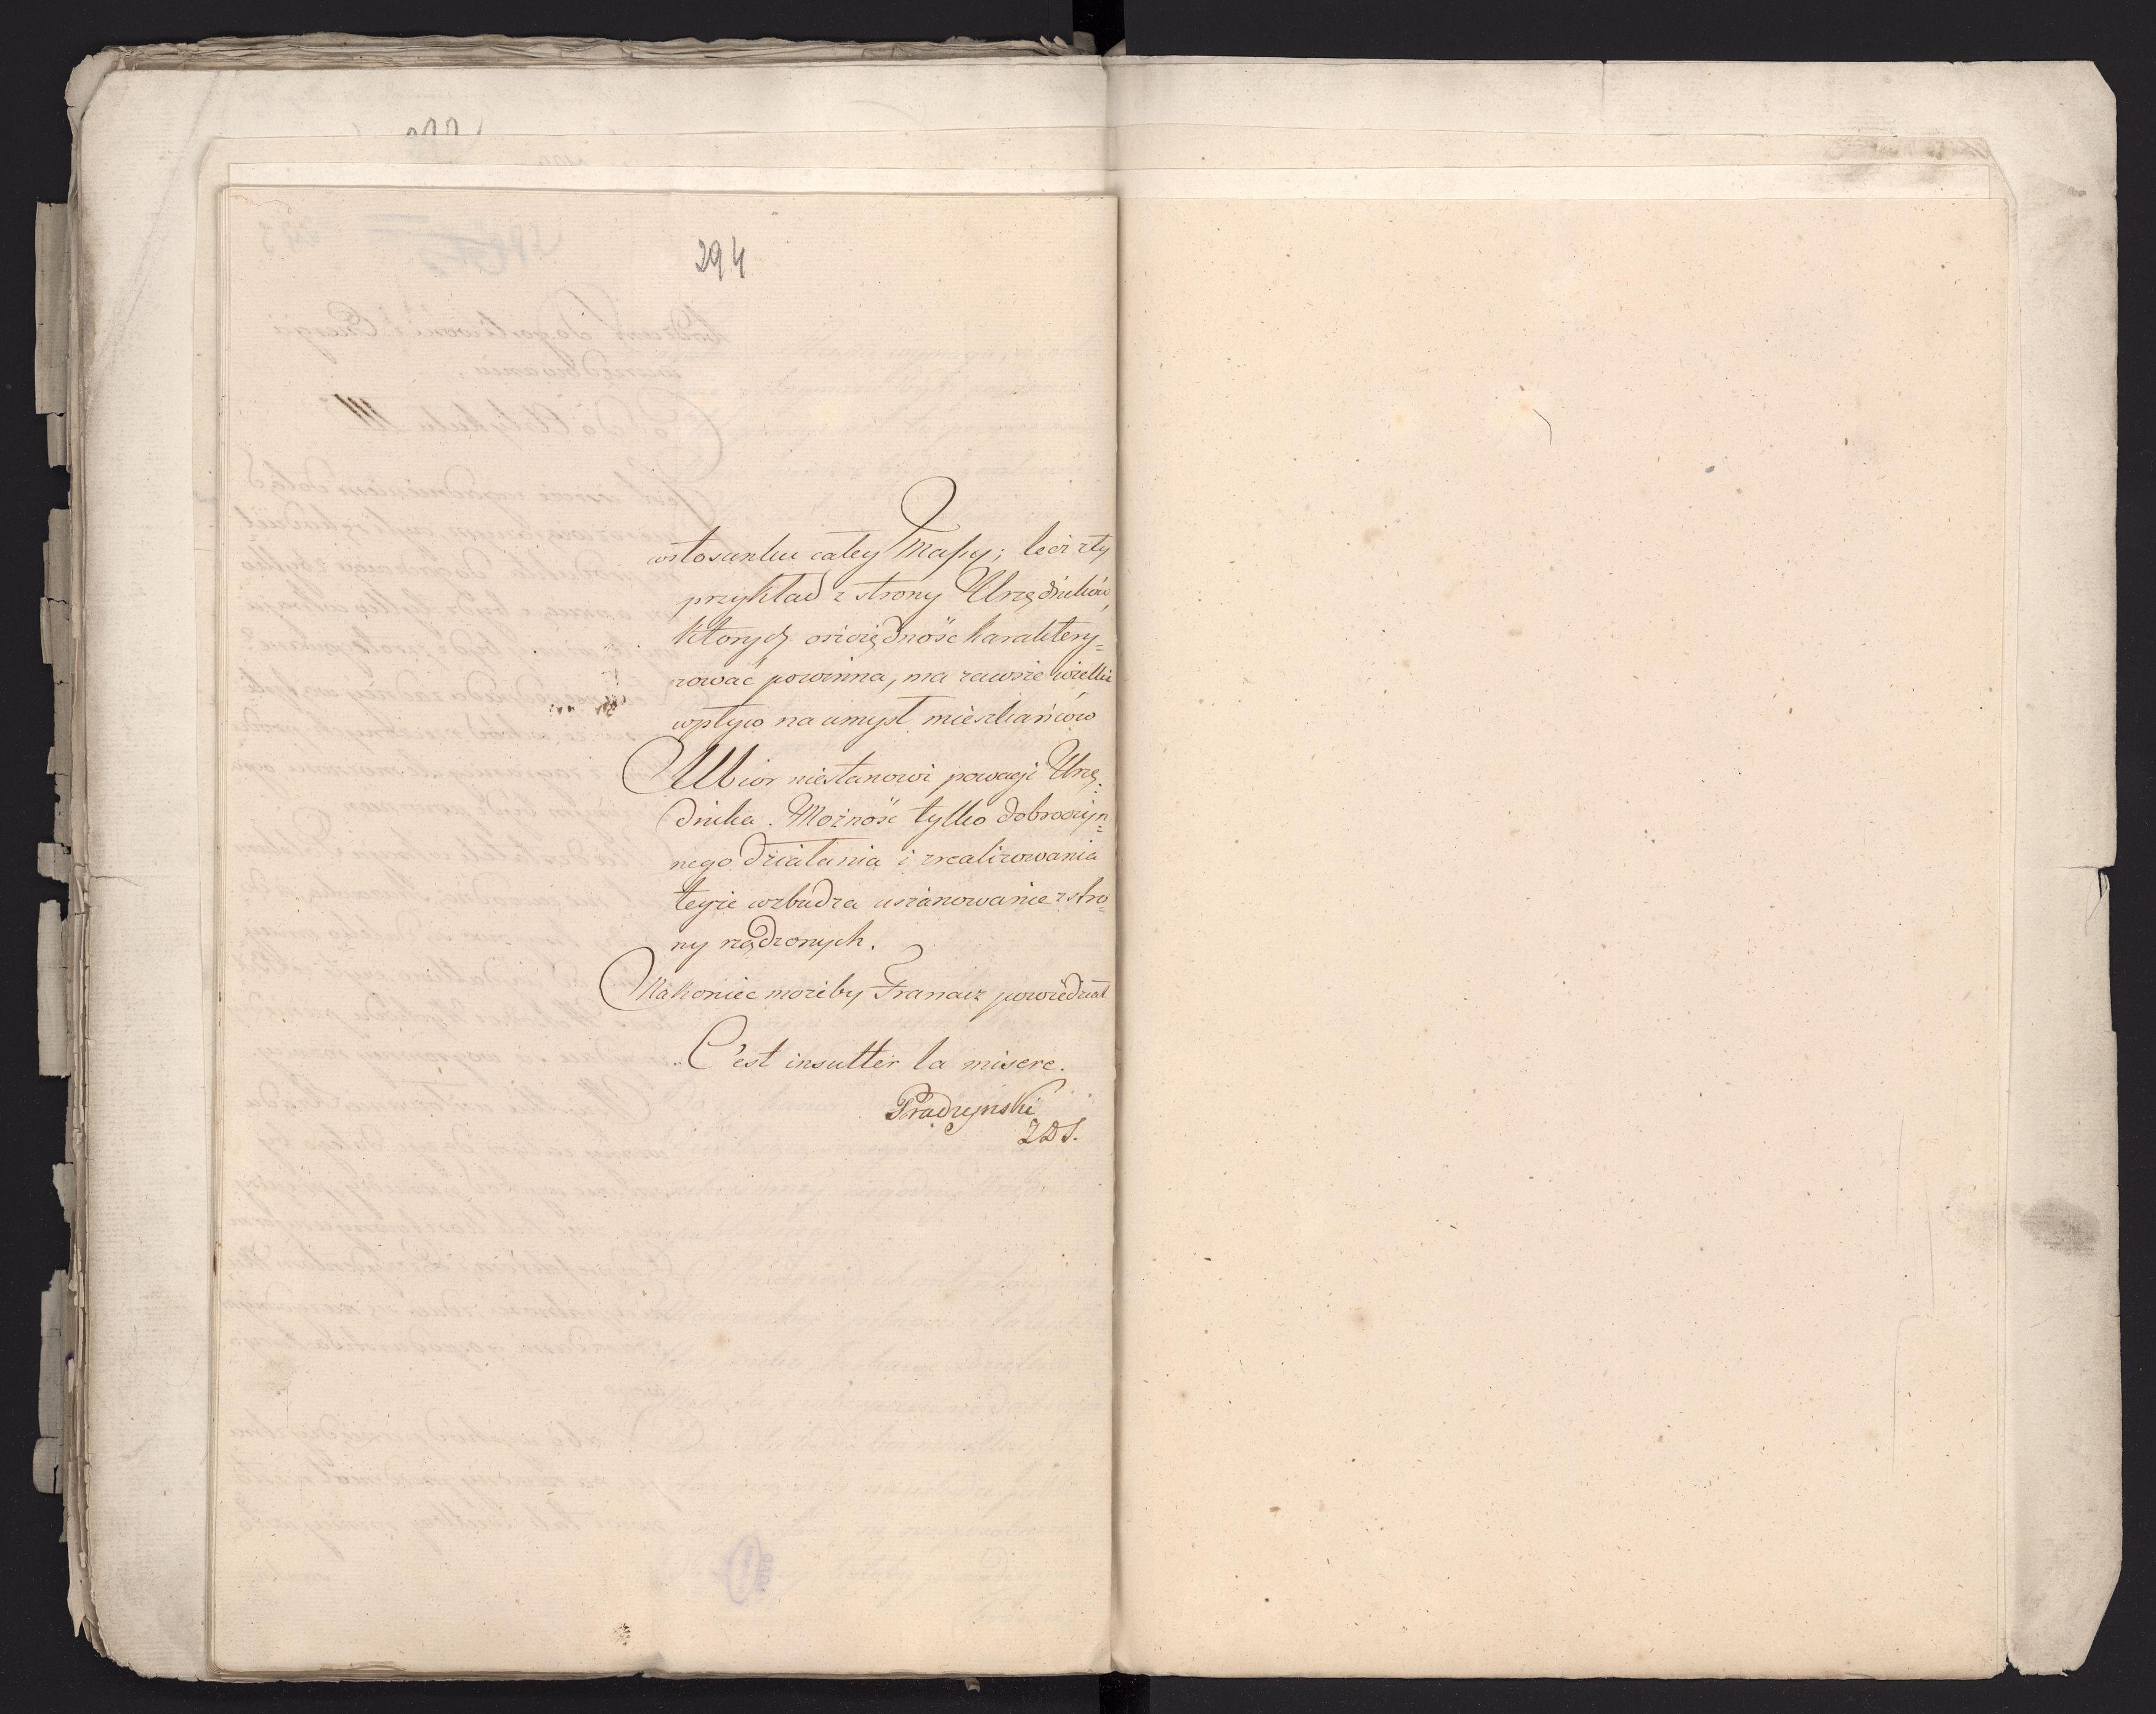 294
wstosunku całey Massy; lecz zły
przykład z strony Urzędników,
których oszczędność haraktery=
zować powinna, ma zawsze wielki
wpływ na umysł mieszkańców
Ubior niestanowi powagi Urzę=
dnika. Możność tylko dobroczyn=
nego działania i zrealizowania
tegie wzbudza uszanowanie z stro=
ny rządzonych.
Nakoniec możeby Francuz powiedział
"C'est insulter la misere.
Prądzyński